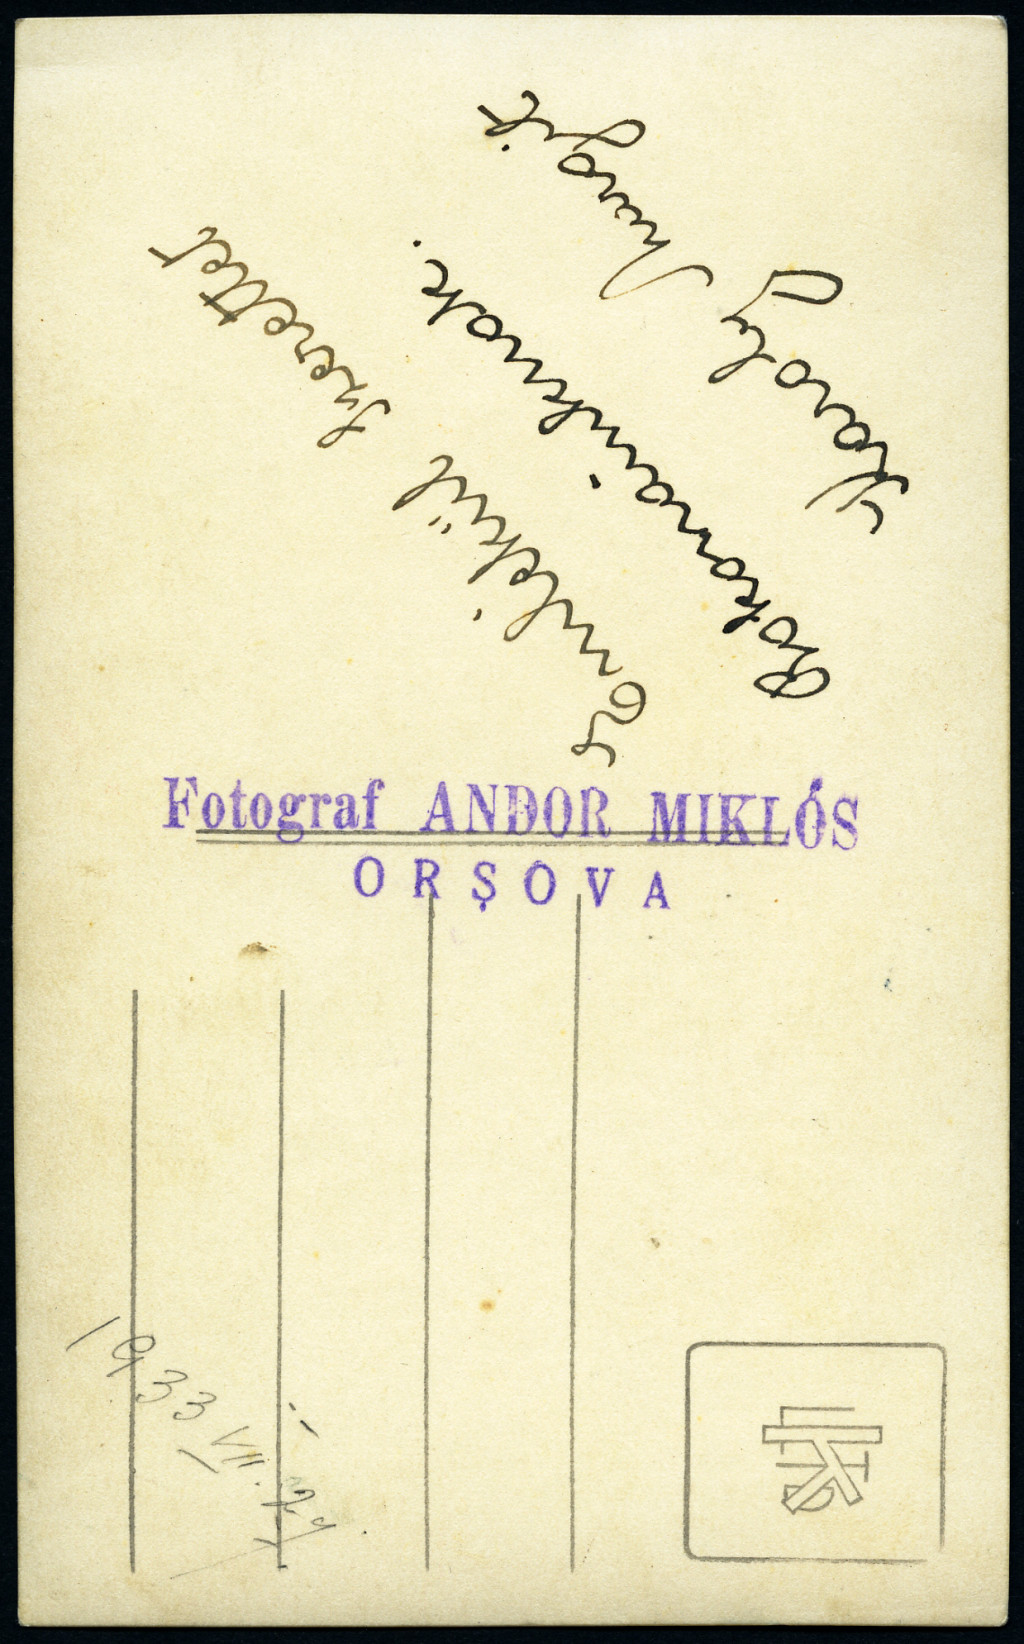 Emlékül Szerettet
Rokonainknak.
Karoly Margit
Fotograf ANDOR MIKLÓS
ORȘOVA
1933 VII.